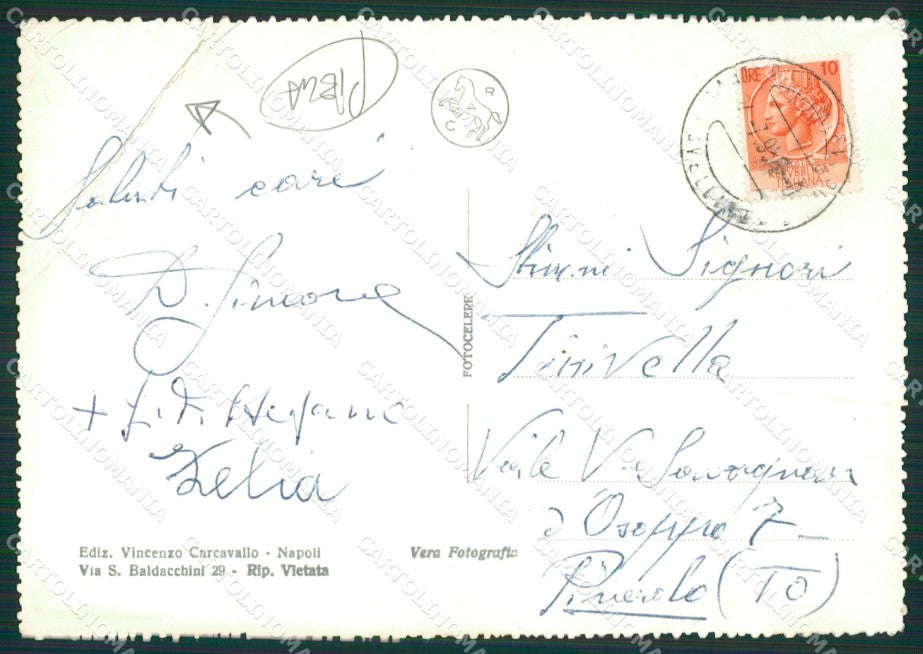 PIEGA
R
C
LIRE 10
REPUBBLICA
ITALIANA
Saluti cari
D. Simone
+ G. D. Stefano
Zelia
Ediz. Vincenzo Carcavallo - Napoli
Via S. Baldacchini 29 - Rip. Vietata
Vera Fotografia
FOTOCELERE
Signori
Tirivella
Viale V.
d'Osoppo 7
Pinerolo (TO)
CARTOLINOMANIA